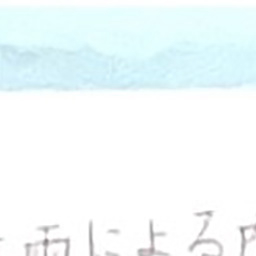 雨による